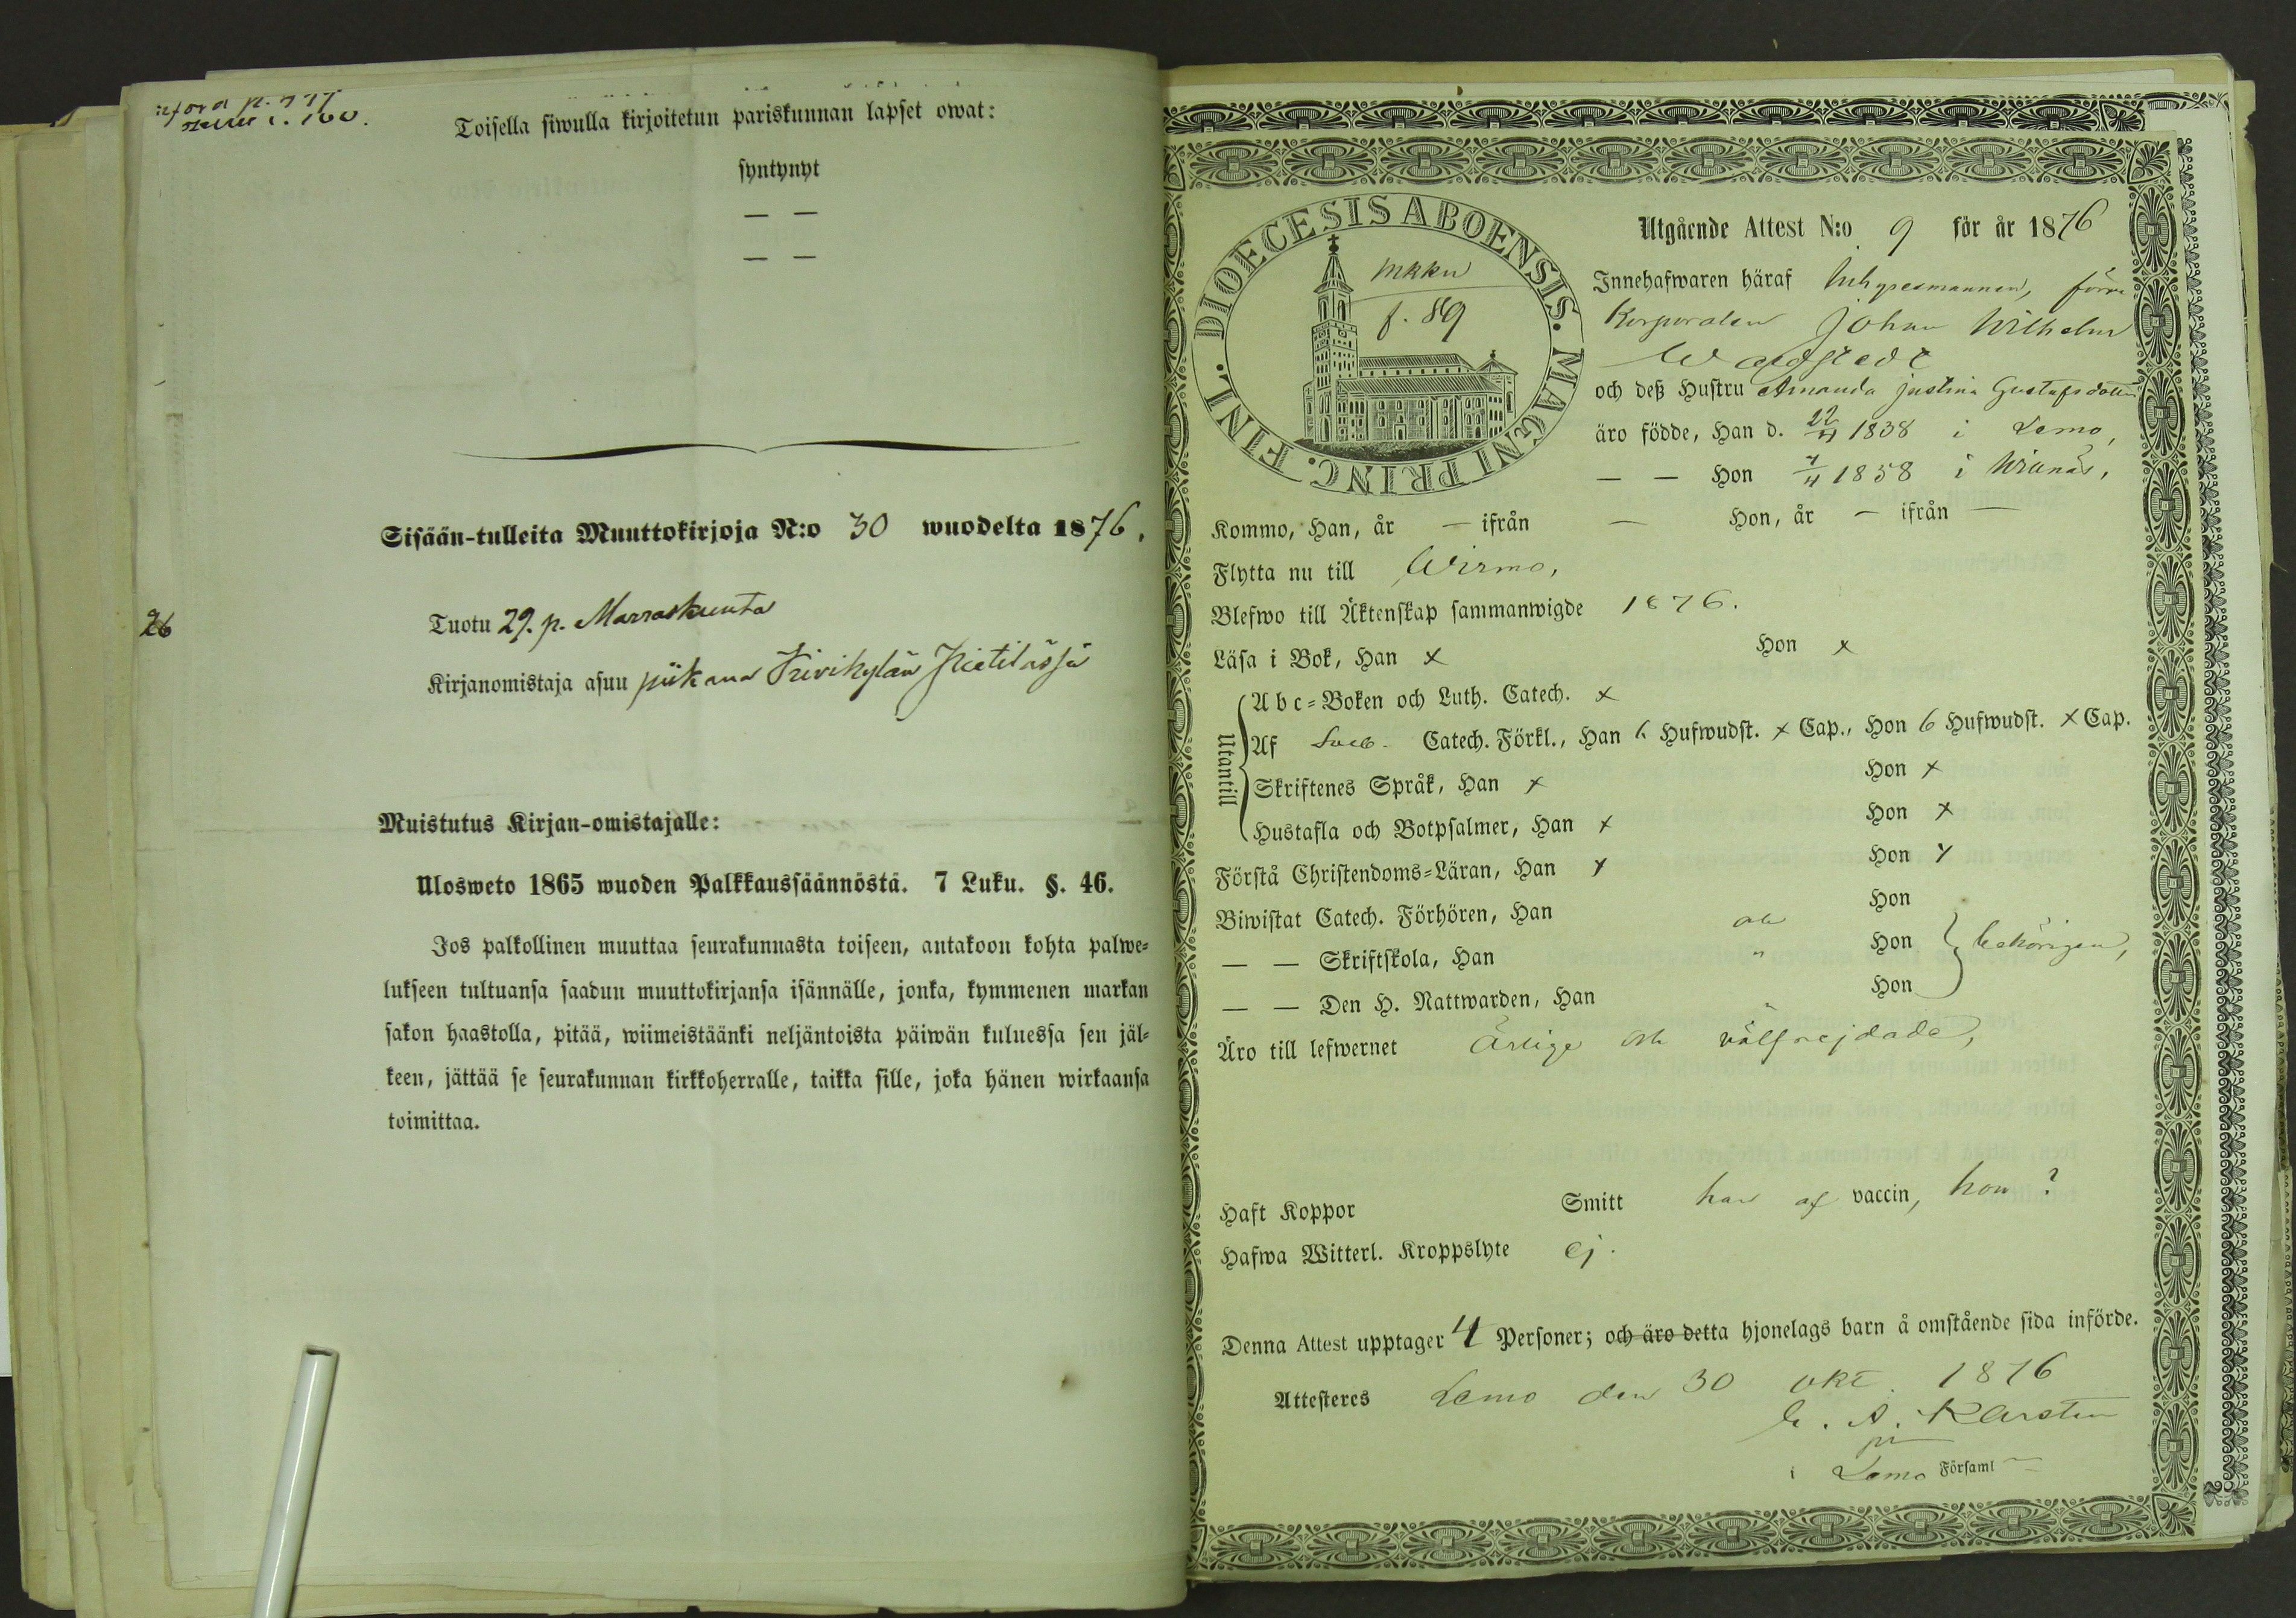 Toisella siwulla kirjoitetun pariskunnan lapset owat:
syntynyt
— —
— —
Sisään-tulleita Muuttokirjoja N:o 30 wuodelta 1876.
26
Tuotu 29. p. Marraskuuta
Kirjanomistaja asuu piikana
Muistutus Kirjan-omistajalle:
Ulosweto 1865 wuoden Palkkaussäännöstä. 7 Luku. §. 46.
Jos palkollinen muuttaa seurakunnasta toiseen, antakoon kohta palwe-
lukseen tultuansa saadun muuttokirjansa isännälle, jonka, kymmenen markan
sakon haastolla, pitää, wiimeistäänki neljäntoista päiwän kuluessa sen jäl-
keen, jättää se seurakunnan kirkkoherralle, taikka sille, joka hänen wirkaansa
toimittaa.
DIOECESIS ABOENSIS. MAGNI PRINC. FINL.
f. 89
Utgående Attest N:o 9 för år 1876
Innehafwaren häraf Inhysesmannen, förre
Korporalen Johan Wilhelm
och deß Hustru Amanda Justina Gustafsdotter
äro födde, Han d. 1838 i Lemo,
— — Hon 1858 i
Kommo, Han, år — ifrån — Hon, år — ifrån —
Flytta nu till Wirmo,
Blefwo till Äktenskap sammanwigde 1876.
Läsa i Bok, Han x Hon x
Utantill
Abc-Boken och Luth. Catech. x
Af Sveb. Catech. Förkl., Han 6 Hufwudst. x Cap., Hon 6 Hufwudst. x Cap.
Skriftenes Språk, Han x Hon x
Hustafla och Botpsalmer, Han x Hon x
Förstå Christendoms-Läran, Han x Hon x
Biwistat Catech. Förhören, Han och Hon
— — Skriftskola, Han " Hon behörigen,
— — Den H. Nattwarden, Han " Hon
Äro till lefwernet Ärlige och välfrejdade,
Haft Koppor Smitt han af vaccin, hon ?
Hafwa Witterl. Kroppslyte ej.
Denna Attest upptager 4 Personer; och äro detta hjonelags barn å omstående sida införde.
Attesteres Lemo den 30 okt. 1876
Karsten
i Lemo Församl